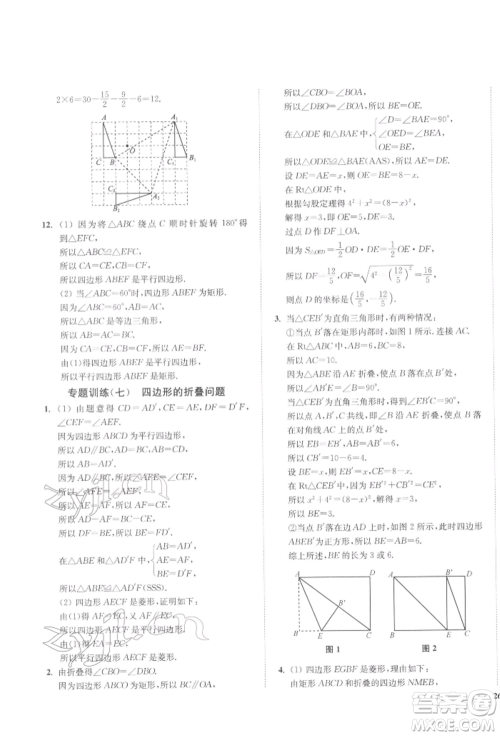 2×6=30－15/2－9/2－6=12.
A
D
A₁
C
B
C₁
B₁
C₂
A₂
B₂
12. (1) 因为将△ABC 绕点 C 顺时针旋转 180°得
到△EFC,
所以△ABC≌△EFC.
所以 CA=CE,CB=CF.
所以四边形 ABEF 是平行四边形.
(2) 当∠ABC=60°时,四边形 ABEF 为矩形.
因为∠ABC=60°,AB=AC,
所以△ABC 是等边三角形,
所以 AB=AC=BC.
因为 CA=CE,CB=CF,
所以 AE=BF.
所以平行四边形 ABEF 是矩形.
专题训练(七) 四边形的折叠问题
1. (1) 由题意得 CD=AD′,CE=AE,∠D′=∠D,
∠CEF=∠AEF.
因为四边形 ABCD 为平行四边形,
所以 AD∥BC,AD=BC,∠B=∠D,
所以 AD′=AB,∠D′=∠B.
因为 AD∥BC,所以∠AFE=∠CEF.
所以∠AFE=∠AEF,
所以 AE=AF,所以 AF=CE.
所以 DF=BE,所以 BE=FD′.
在△ABE 和△AD′F 中,
AB=AD′,
BE=D′F,
AE=AF,
所以△ABE≌△AD′F(SSS).
(2) 四边形 AECF 是菱形,证明如下:
由(1)可得 AF=CE,AF∥CE,
所以四边形 AECF 是平行四边形.
因为 AE=CE,
所以四边形 AECF 是菱形.
2. 因为四边形 OABC 是矩形,所以 BC∥OA,
所以∠CBO=∠BOA.
由折叠的性质得∠DBO=∠CBO,
所以∠BOA=∠DBO,所以 OE=BE.
在△ODE 和△BAE 中,
∠D=∠BAE=90°,
∠OED=∠BEA,
OE=BE,
所以△ODE≌△BAE(AAS),所以 AE=DE.
设 AE=DE=x,则 OE=BE=8－x.
在 Rt△ODE 中,
根据勾股定理得 4²＋x²=(8－x)²,解得 x=3.
过点 D 作 DF⊥OA.
因为 S△OED=1/2 OD·DE=1/2 OE·DF,
所以 DF=12/5,所以 OF=√(4²－(12/5)²)=16/5,
则点 D 的坐标为(16/5,－12/5).
3. 当△CEB′为直角三角形时,有两种情况:
①当点 B′落在矩形内部时,如图 1 所示.
在 Rt△ABC 中,AB=6,BC=8,
所以 AC=10.
因为△ABE 沿 AE 折叠,使点 B 落在点 B′处,
所以∠AB′E=∠B=90°,
当△CEB′为直角三角形时,∠EB′C=90°,
所以点 A,B′,C 共线,即△ABE 沿 AE 折叠,点 B 落
在对角线 AC 上的点 B′处,
所以 EB=EB′,AB=AB′=6,
所以 CB′=10－6=4.
设 BE=x,则 EB′=x,CE=8－x.
在 Rt△CEB′中,由勾股定理得 EB′²＋CB′²=CE²,
所以 x²＋4²=(8－x)²,解得 x=3,
所以 BE=3.
②当点 B′落在 AD 边上时,如图 2 所示,此时四边形
ABEB′为正方形,所以 BE=AB=6.
综上所述,BE 的长为 3 或 6.
A
D
B′
B
E
C
图 1
A
B′
D
B
E
C
图 2
4. (1) 四边形 EGBF 是菱形.理由如下:
由矩形 ABCD 和折叠的性质得四边形 ABCD 和四边形